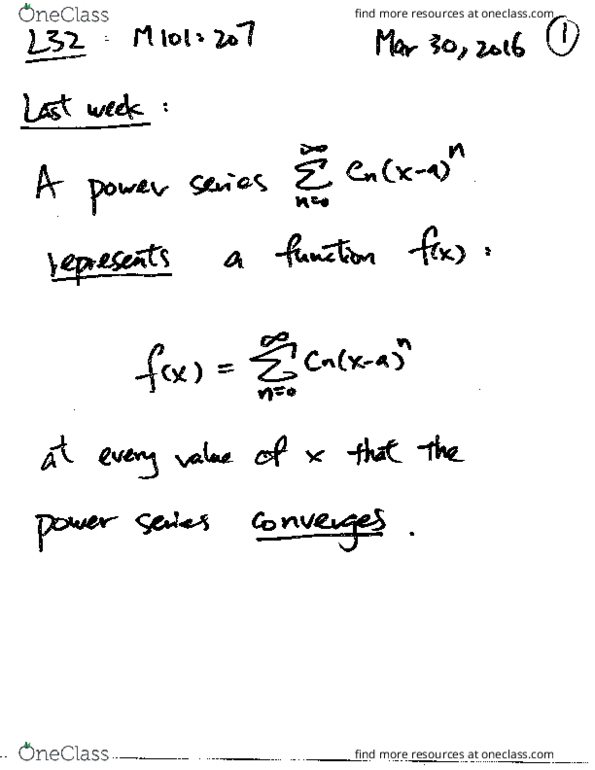 OneClass
find more resources at oneclass.com
L32 : M101:207 Mar 30, 2016 1
Last week :
A power series ∞∑n=0 Cn(x-a)^n
represents a function f(x) :
f(x) = ∞∑n=0 Cn(x-a)^n
at every value of x that the
power series converges .
OneClass
find more resources at oneclass.com